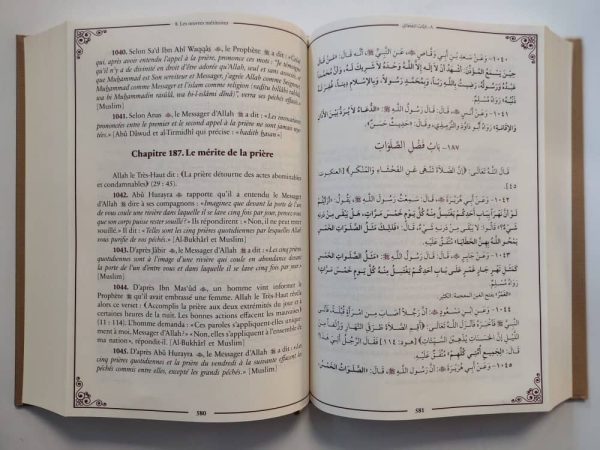 8. Les œuvres méritoires
1040. Selon Sa'd Ibn Abî Waqqâs, le Prophète ﷺ a dit : «Celui
qui, après avoir entendu l'appel à la prière, prononce ces mots : "Je témoigne
qu'il n'y a de divinité en droit d'être adorée qu'Allah, seul et sans associé, et
que Muḥammad est Son serviteur et Messager, j'agrée Allah comme Seigneur,
Muḥammad comme Messager et l'islam comme religion
wa bi Muḥammadin rasûlâ, wa bi-l-islâmi dînâ)", verra ses péchés effacés.»
[Muslim]
1041. Selon Anas, le Messager d'Allah ﷺ a dit : «Les invocations
prononcées entre le premier et le second appel à la prière ne sont jamais
[Abû Dâwud et al-Tirmidhî qui précise : «hadith ḥasan»]
Chapitre 187. Le mérite de la prière
Allah le Très-Haut dit : (La prière détourne des actes abominables
et condamnables) (29 : 45).
1042. Abû Hurayra rapporte qu'il a entendu le Messager
d'Allah ﷺ dire à ses compagnons : «Imaginez que devant la porte de l'un
de vous coule une rivière dans laquelle il se lave cinq fois par jour, pensez-vous
que son corps puisse rester souillé ?» Ils répondirent : «Non, il ne peut rester
souillé.» Il dit : «Telles sont les cinq prières quotidiennes par lesquelles Allah
vous purifie de vos péchés.» [Al-Bukhârî et Muslim]
1043. D'après Jâbir, le Messager d'Allah ﷺ a dit : «Les cinq prières
quotidiennes sont à l'image d'une rivière qui coule en abondance devant
la porte de l'un d'entre vous et dans laquelle il se lave cinq fois par jour.»
[Muslim]
1044. D'après Ibn Mas'ûd, un homme vint informer le
Prophète ﷺ qu'il avait embrassé une femme. Allah le Très-Haut révéla
alors ce verset : (Accomplis la prière aux deux extrémités du jour et à
certaines heures de la nuit. Les bonnes actions effacent les mauvaises)
(11 : 114). L'homme demanda : «Ces paroles s'appliquent-elles unique-
ment à moi, Messager d'Allah ?» «Non, elles s'appliquent à l'ensemble de
ma nation», répondit-il. [Al-Bukhârî et Muslim]
1045. D'après Abû Hurayra, le Messager d'Allah ﷺ a dit : «Les
cinq prières quotidiennes et la prière du vendredi à la suivante effacent les
péchés commis entre elles, excepté les grands péchés.» [Muslim]
580
١٠٤٠- وَعَنْ سَعْدِ بْنِ أَبِي وَقَّاصٍ، عَنِ النَّبِيِّ ﷺ، أَنَّهُ قَالَ: «مَنْ قَالَ
حِينَ يَسْمَعُ المُؤَذِّنَ: أَشْهَدُ أَنْ لَا إِلَهَ إِلَّا اللَّهُ وَحْدَهُ لَا شَرِيكَ لَهُ،
رَضِيتُ بِاللَّهِ رَبًّا، وَبِمُحَمَّدٍ رَسُولًا، وَبِالإِسْلَامِ دِينًا،
رَوَاهُ مُسْلِمٌ.
١٠٤١- وَعَنْ أَنَسٍ، قَالَ: قَالَ رَسُولُ اللَّهِ ﷺ: «الدُّعَاءُ لَا يُرَدُّ بَيْنَ الأَذَانِ
وَالإِقَامَةِ» رَوَاهُ أَبُو دَاوُدَ وَالتِّرْمِذِيُّ، وَقَالَ: «حَدِيثٌ حَسَنٌ».
١٨٧- بَابُ فَضْلِ الصَّلَوَاتِ
قَالَ اللَّهُ تَعَالَى: ﴿إِنَّ الصَّلَاةَ تَنْهَى عَنِ الفَحْشَاءِ وَالمُنْكَرِ﴾ [العنكبوت:
٤٥].
١٠٤٢- وَعَنْ أَبِي هُرَيْرَةَ، قَالَ: سَمِعْتُ رَسُولَ اللَّهِ ﷺ، يَقُولُ: «أَرَأَيْتُمْ
لَوْ أَنَّ نَهْرًا بِبَابِ أَحَدِكُمْ يَغْتَسِلُ مِنْهُ كُلَّ يَوْمٍ خَمْسَ مَرَّاتٍ، هَلْ يَبْقَى مِنْ دَرَنِهِ
شَيْءٌ؟» قَالُوا: لَا يَبْقَى مِنْ دَرَنِهِ شَيْءٌ، قَالَ: «فَذَلِكَ مَثَلُ الصَّلَوَاتِ الخَمْسِ
يَمْحُو اللَّهُ بِهِنَّ الخَطَايَا» مُتَّفَقٌ عَلَيْهِ.
١٠٤٣- وَعَنْ جَابِرٍ، قَالَ: قَالَ رَسُولُ اللَّهِ ﷺ: «مَثَلُ الصَّلَوَاتِ الخَمْسِ
كَمَثَلِ نَهْرٍ جَارٍ غَمْرٍ عَلَى بَابِ أَحَدِكُمْ يَغْتَسِلُ مِنْهُ كُلَّ يَوْمٍ خَمْسَ مَرَّاتٍ»
رَوَاهُ مُسْلِمٌ.
«الغَمْرُ» بفتح الغين المعجمة: الكثير.
١٠٤٤- وَعَنِ ابْنِ مَسْعُودٍ، أَنَّ رَجُلًا أَصَابَ مِنِ امْرَأَةٍ قُبْلَةً، فَأَتَى
النَّبِيَّ ﷺ فَأَخْبَرَهُ، فَأَنْزَلَ اللَّهُ تَعَالَى: ﴿أَقِمِ الصَّلَاةَ طَرَفَيِ النَّهَارِ وَزُلَفًا مِنَ
اللَّيْلِ إِنَّ الحَسَنَاتِ يُذْهِبْنَ السَّيِّئَاتِ﴾ [هود: ١١٤] فَقَالَ الرَّجُلُ: أَلِي هَذَا؟
قَالَ: «لِجَمِيعِ أُمَّتِي كُلِّهِمْ» مُتَّفَقٌ عَلَيْهِ.
١٠٤٥- وَعَنْ أَبِي هُرَيْرَةَ، أَنَّ رَسُولَ اللَّهِ ﷺ، قَالَ: «الصَّلَوَاتُ الخَمْسُ
581